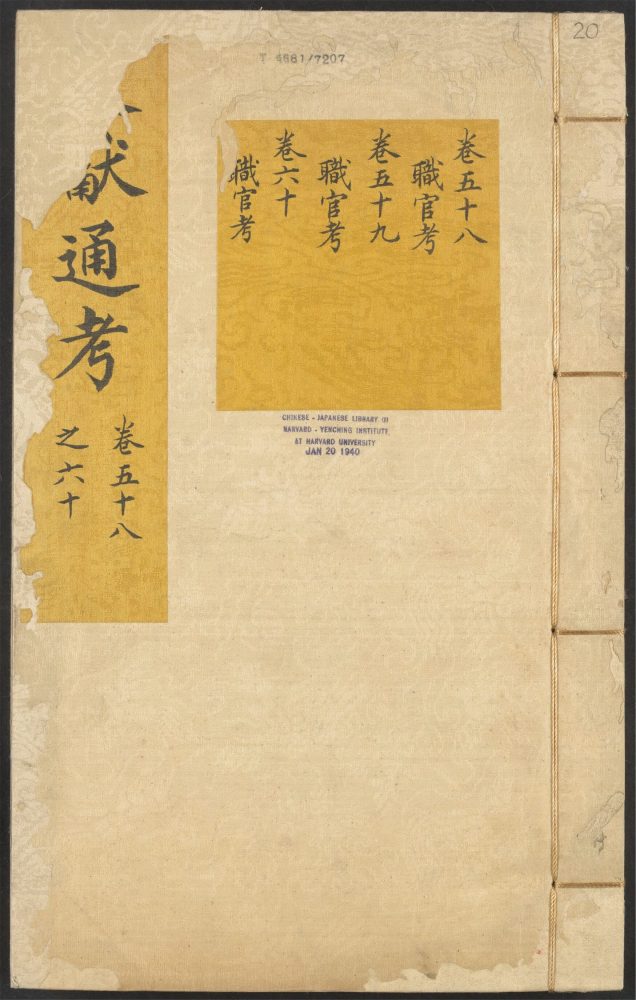 20
T 4681/7207
卷五十八
職官考
卷五十九
職官考
卷六十
職官考
獻通考
卷五十八
之六十
CHINESE - JAPANESE LIBRARY OF
HARVARD - YENCHING INSTITUTE
AT HARVARD UNIVERSITY
JAN 20 1940